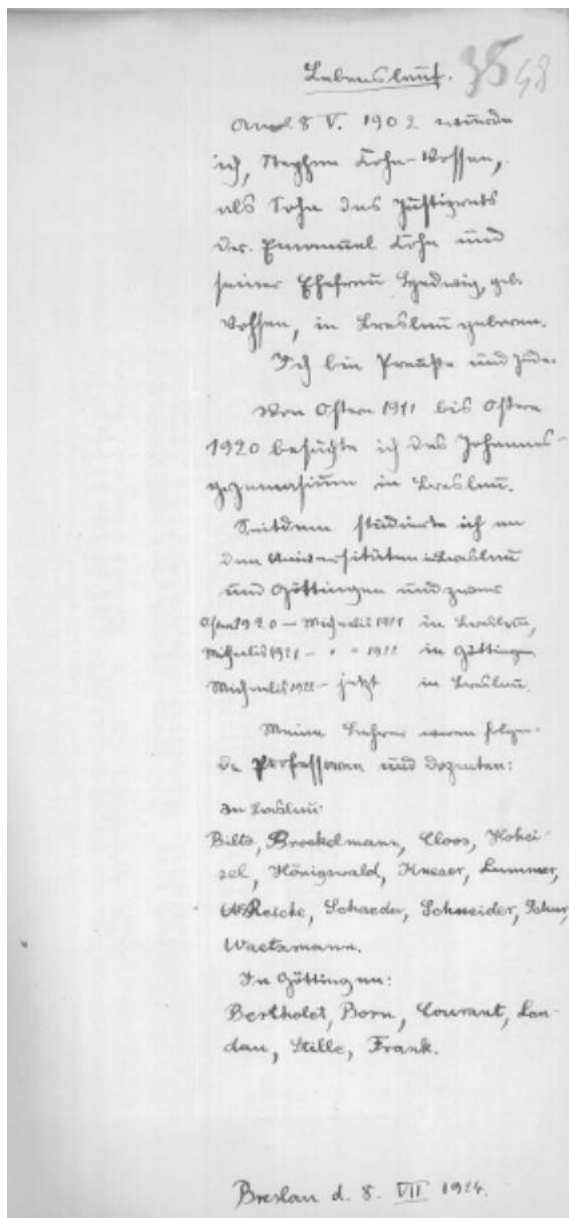 Lebenslauf. 35 48
Am 8 V. 1902 wurde
ich, Stephan Cohn-Vossen,
als Sohn des Justizrats
Dr. Emanuel Cohn und
seiner Ehefrau Hedwig, geb.
Vohssen, in Breslau geboren.
Ich bin Preuße und Jude.
Von Ostern 1911 bis Ostern
1920 besuchte ich das Johannes-
gymnasium in Breslau.
Seitdem studierte ich an
den Universitäten in Breslau
und Göttingen und zwar
Ostern 1920 — Michaelis 1921 in Breslau,
Michaelis 1921 - " " 1922 in Göttingen
Michaelis 1922 - jetzt in Breslau.
Meine Lehrer waren folgen-
de Professoren und Dozenten:
In Breslau:
Biltz, Brockelmann, Cloos, Hohei-
sel, Hönigswald, Kneser, Lummer,
Reiche, Schaeder, Schneider, Schur,
Waetzmann.
In Göttingen:
Bertholet, Born, Courant, Lan-
dau, Stille, Frank.
Breslau d. 8. VII 1924.